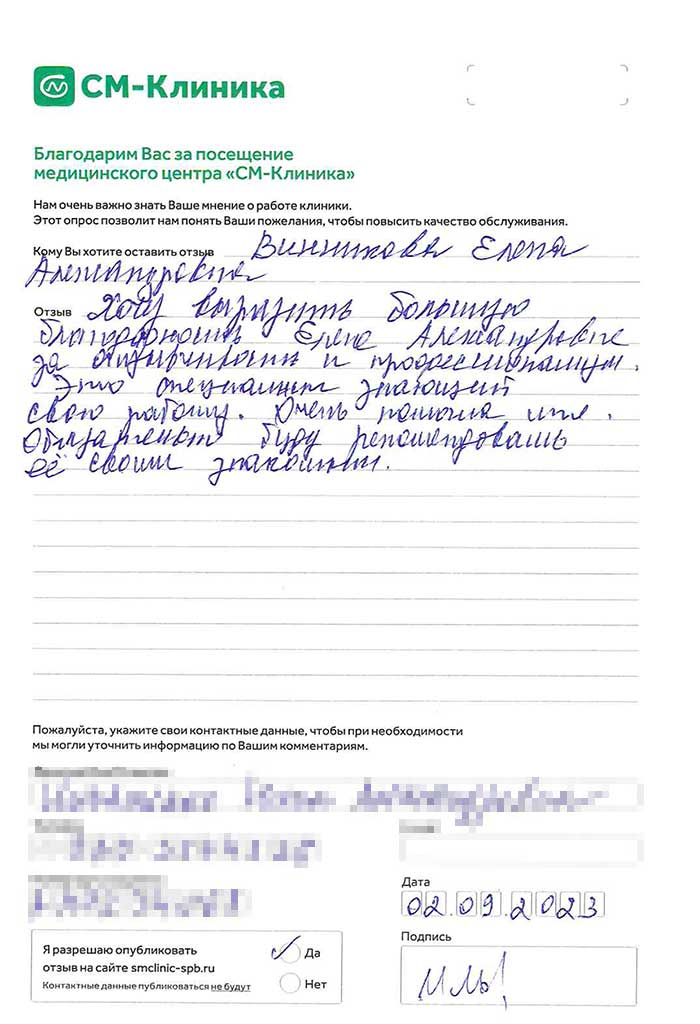 СМ-Клиника
Благодарим Вас за посещение
медицинского центра «СМ-Клиника»
Нам очень важно знать Ваше мнение о работе клиники.
Этот опрос позволит нам понять Ваши пожелания, чтобы повысить качество обслуживания.
Кому Вы хотите оставить отзыв Винникова Елена
Александровна
Отзыв Хочу выразить большую
благодарность Елене Александровне
за и профессионализм.
Это специалист знающий
свою работу. Очень помогла мне.
Обязательно буду рекомендовать
её своим знакомым.
Пожалуйста, укажите свои контактные данные, чтобы при необходимости
мы могли уточнить информацию по Вашим комментариям.
Дата
02.09.2023
Подпись
Я разрешаю опубликовать
отзыв на сайте smclinic-spb.ru
Контактные данные публиковаться не будут
Да
Нет